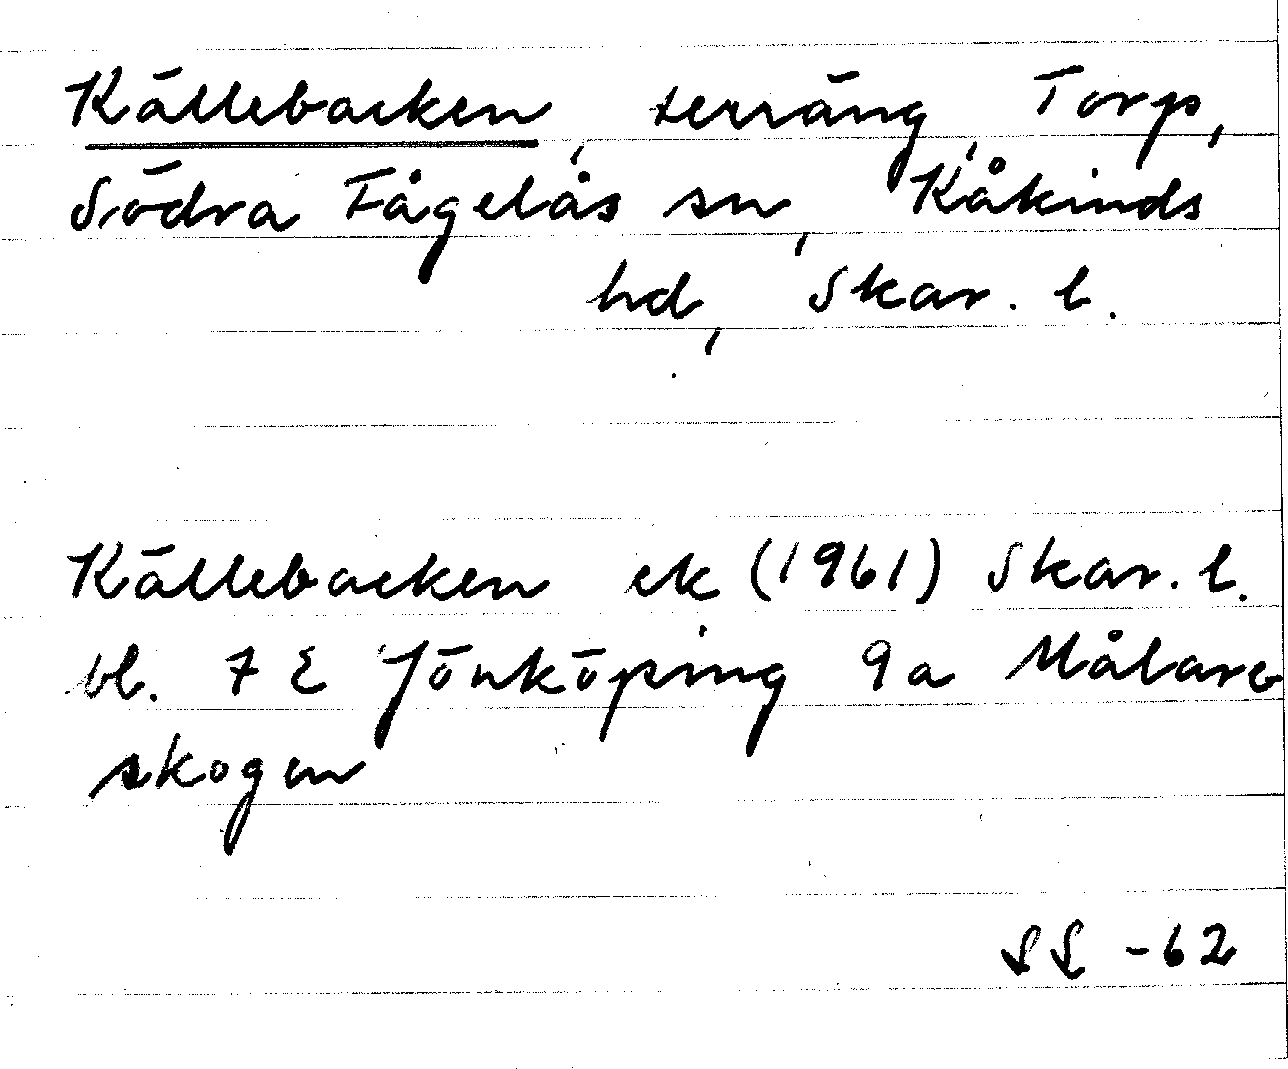 Källebacken, terräng, Torp,
Södra Fågelås sn, Kåkinds
hd, Skar. l.
Källebacken ek (1961) Skar. l.
bl. 7 E Jönköping 9a Målare
skogen
SS -62